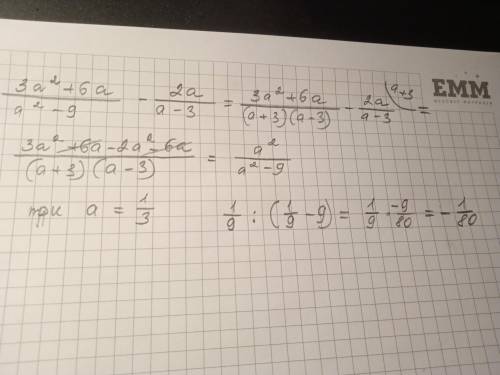 EMM
(3a² + 6a)/(a² - 9) - 2a/(a - 3) = (3a² + 6a)/((a + 3)(a - 3)) - 2a/(a - 3) ^(a + 3) =
(3a² + 6a - 2a² - 6a)/((a + 3)(a - 3)) = a²/(a² - 9)
при a = 1/3    1/9 : (1/9 - 9) = 1/9 · -9/80 = -1/80